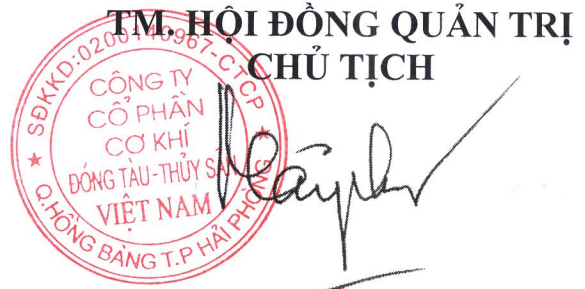 TM. HỘI ĐỒNG QUẢN TRỊ
CHỦ TỊCH
CÔNG TY
CỔ PHẦN
CƠ KHÍ
ĐÓNG TÀU-THỦY SẢN
VIỆT NAM
Q.HỒNG BÀNG T.P HẢI PHÒNG